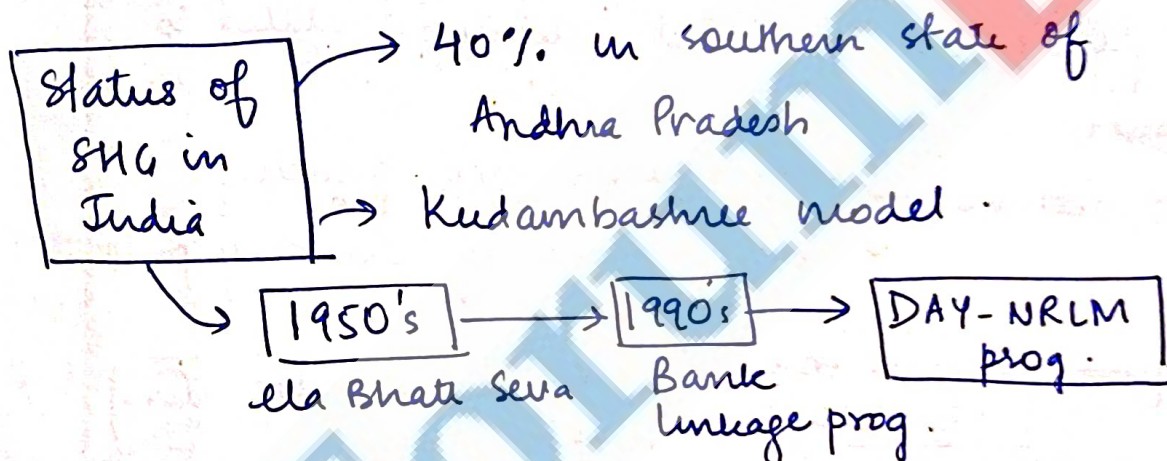 Status of
SHG in
India
40% in southern state of
Andhra Pradesh
Kudambashree model.
1950's
1990's
DAY-NRLM
prog.
ela Bhatt Seva
Bank
linkage prog.
forum